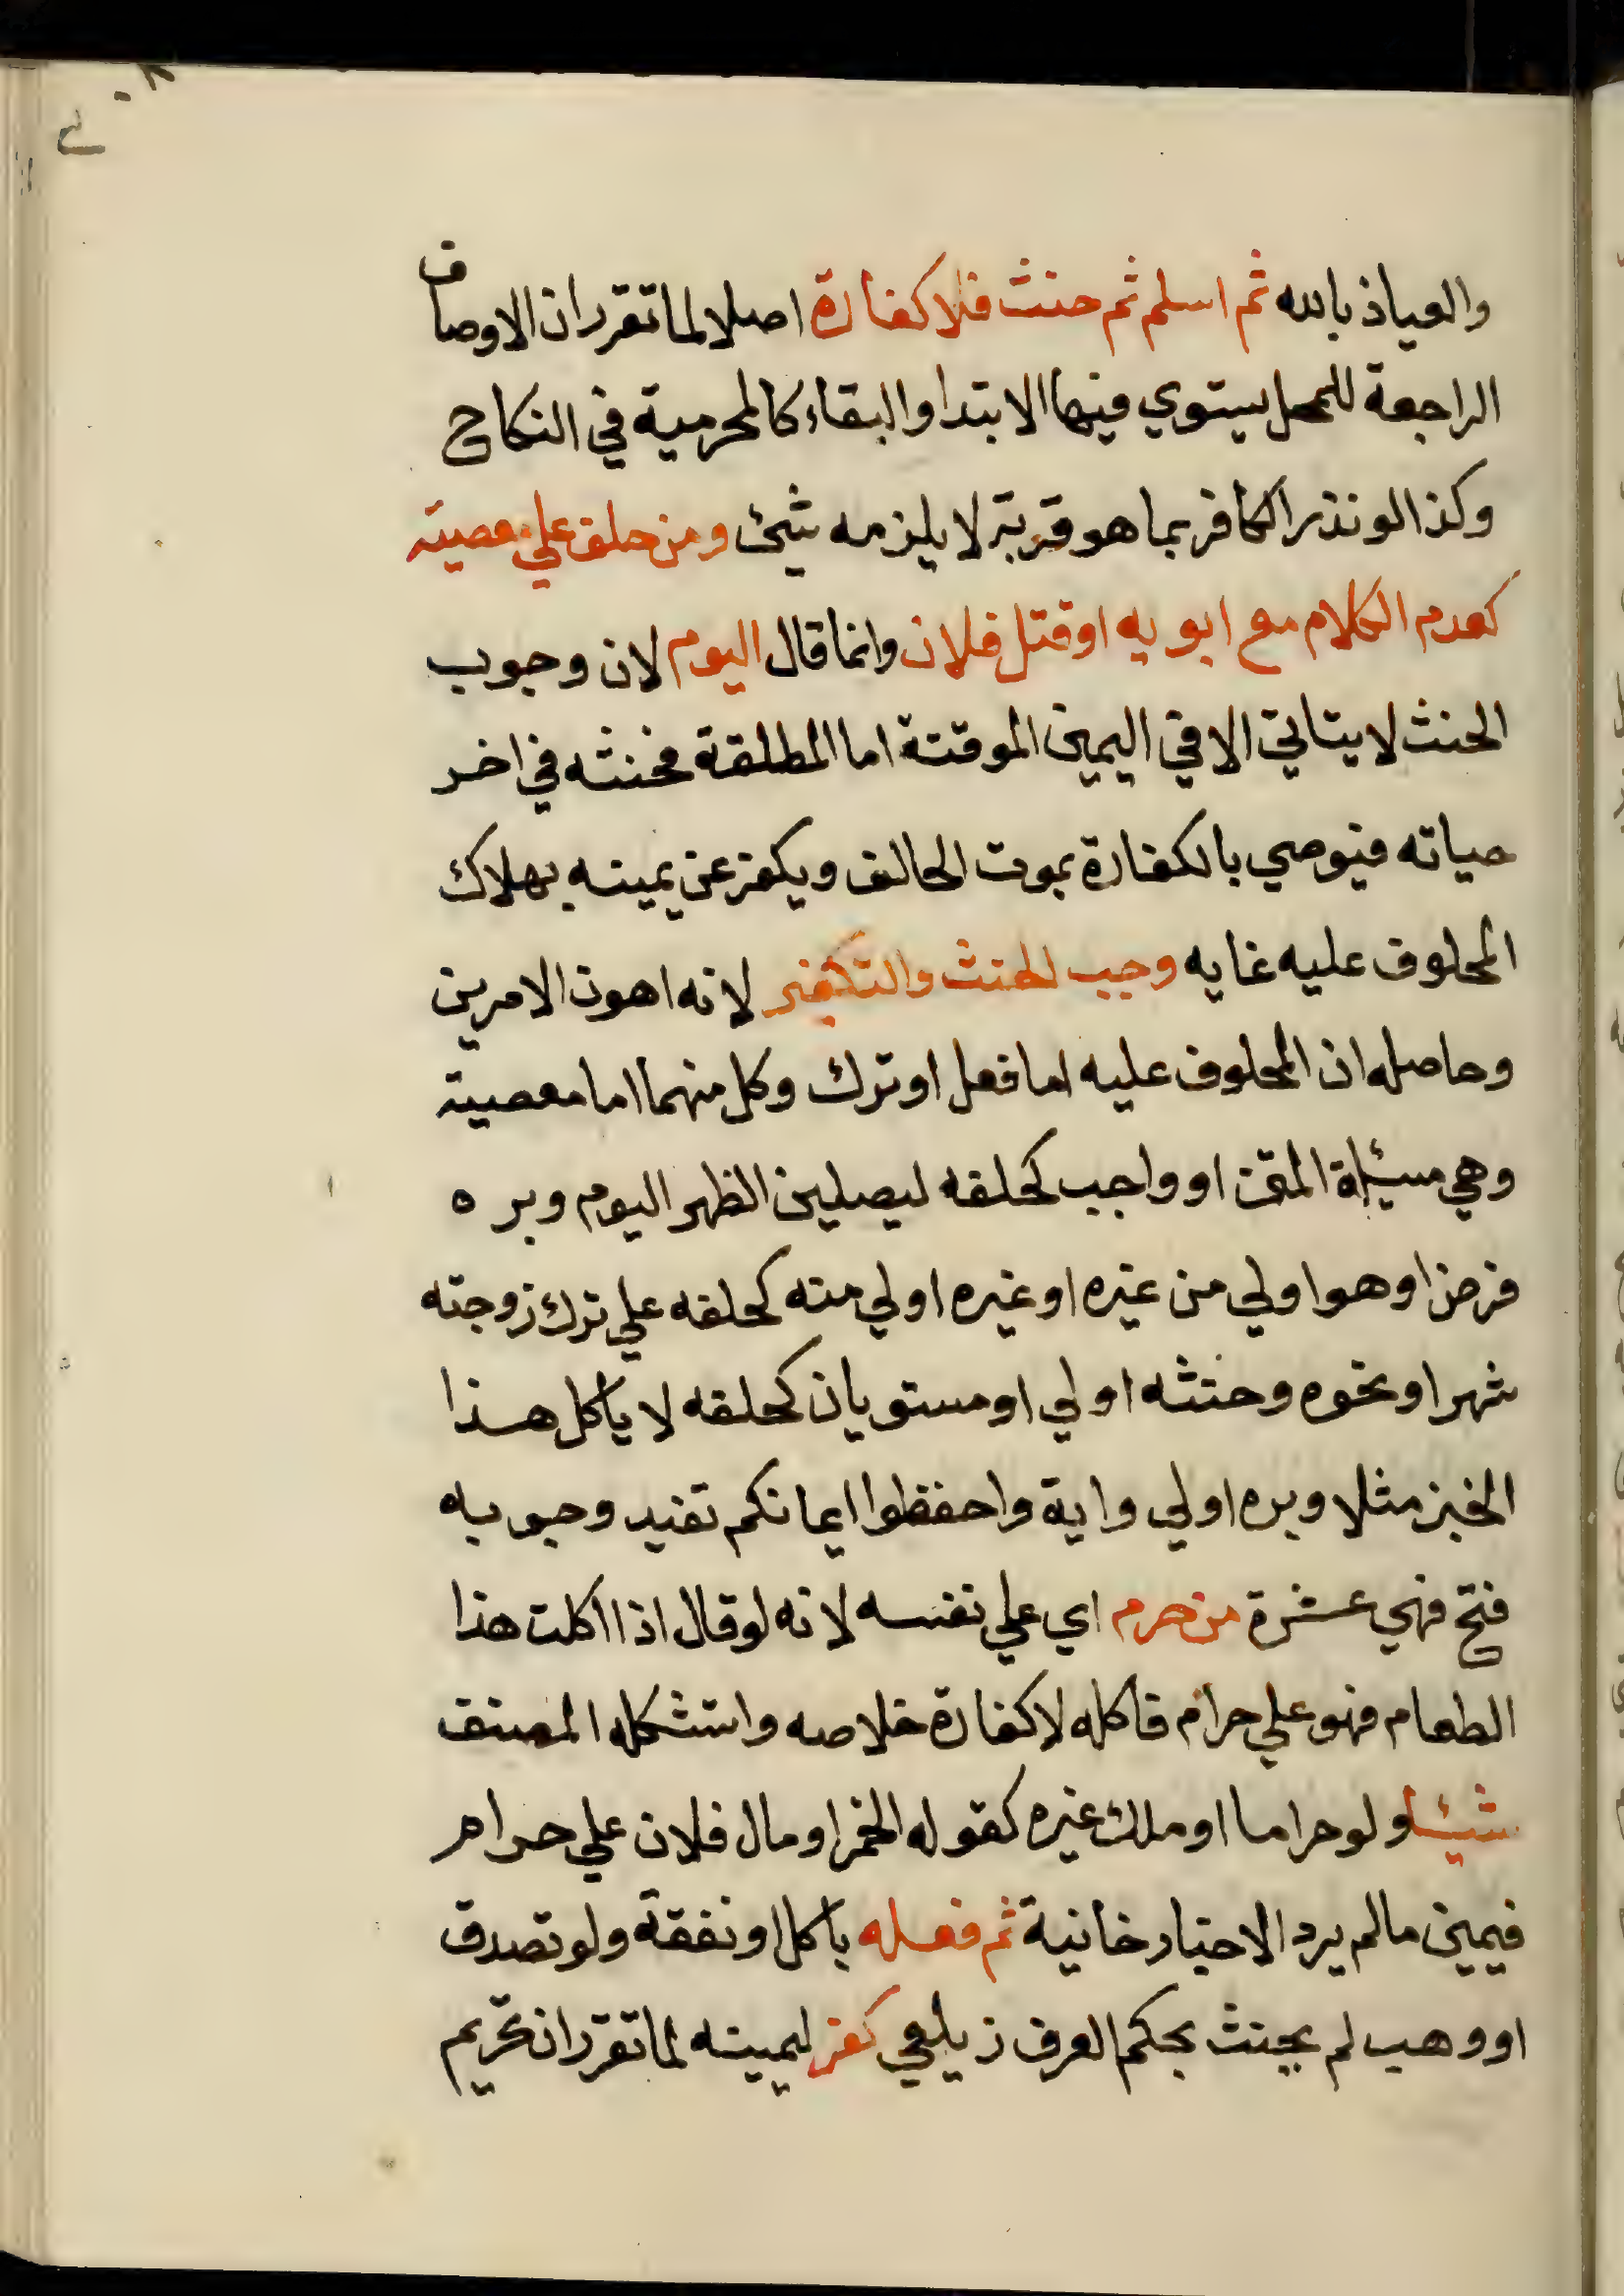 والعياذ بالله ثم اسلم ثم حنث فلا كفارة اصلا لما تقرر ان الاوصاف
الراجعة للمحل يستوي فيها الابتدا والبقاء كالمحرمية في النكاح
وكذا لو نذر الكافر بما هو قربة لا يلزمه شئ ومن حلف علي معصية
كعدم الكلام مع ابويه او قتل فلان وانما قال اليوم لان وجوب
الحنث لا يتاتي الا في اليمين الموقتة اما المطلقة فحنثه في اخر
حياته فيوصي بالكفارة بموت الحالف ويكفر عن يمينه بهلاك
المحلوف عليه غايه وجب الحنث والتكفير لانه اهون الامرين
وحاصله ان المحلوف عليه اما فعل او ترك وكل منهما اما معصية
وهي مسئلة المتن او واجب كحلفه ليصلين الظهر اليوم وبره
فرض او هو اولي من غيره او غيره اولي منه كحلفه علي ترك زوجته
شهرا ونحوه وحنثه اولي او مستويان كحلفه لا ياكل هذا
الخبز مثلا وبره اولي واية واحفظوا ايمانكم تفيد وجوبه
فتح فهي عشرة من حرم اي علي نفسه لانه لو قال اذا اكلت هذا
الطعام فهو علي حرام فاكله لا كفارة خلاصه واستشكله المصنف
شيئا ولو حراما او ملك غيره كقوله الخمر او مال فلان علي حرام
فيمين مالم يرد الاخبار خانية ثم فعله باكل او نفقة ولو تصدق
او وهب لم يحنث بحكم العرف زيلعي كفر ليمينه لما تقرر ان تحريم